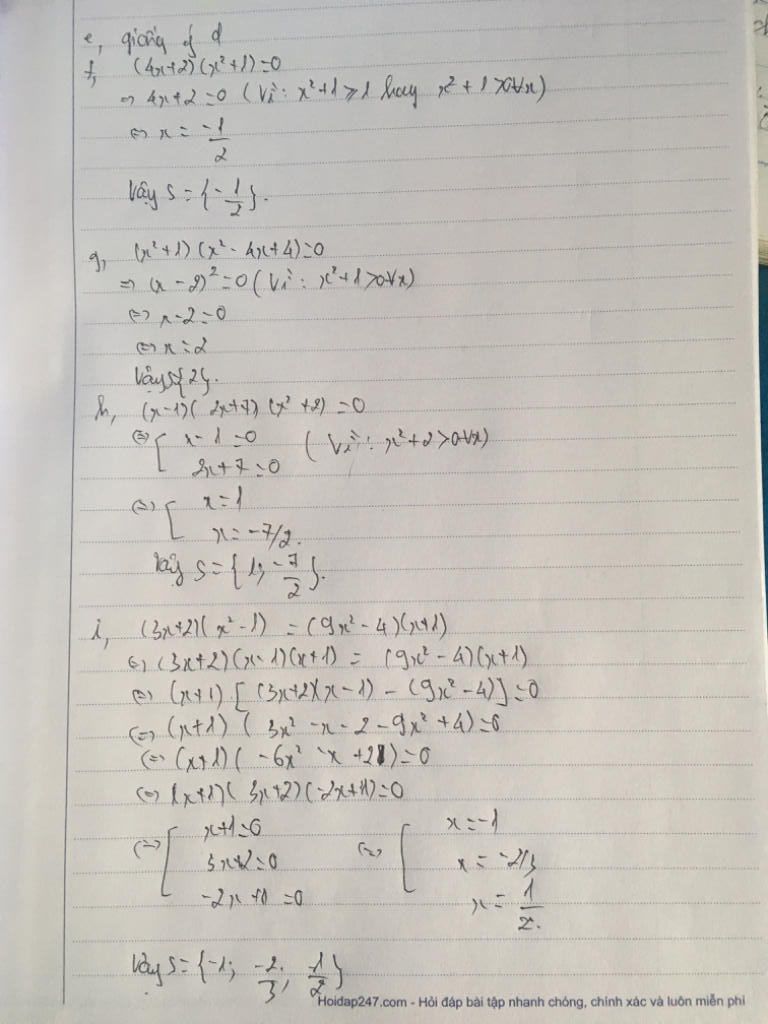 e, giống ý d
f, (4x+2)(x²+1)=0
⇒ 4x+2=0 (Vì: x²+1⩾1 hay x²+1>0∀x)
⇔ x = -1/2
Vậy S={-1/2}.
g, (x²+1)(x²-4x+4)=0
⇒ (x-2)²=0 (Vì: x²+1>0∀x)
⇔ x-2=0
⇔ x=2
Vậy S{2}.
h, (x-1)(2x+7)(x²+2)=0
⇔ [ x-1=0 (Vì: x²+2>0∀x)
2x+7=0
⇔ [ x=1
x=-7/2.
Vậy S={1; -7/2}.
i, (3x+2)(x²-1) = (9x²-4)(x+1)
⇔ (3x+2)(x-1)(x+1) = (9x²-4)(x+1)
⇔ (x+1)[(3x+2)(x-1)-(9x²-4)]=0
⇔ (x+1)(3x²-x-2-9x²+4)=0
⇔ (x+1)(-6x²-x+2)=0
⇔ (x+1)(3x+2)(-2x+1)=0
⇔ [ x+1=0 ⇔ [ x=-1
3x+2=0 x=-2/3
-2x+1=0 x=1/2.
Vậy S={-1; -2/3; 1/2}
Hoidap247.com - Hỏi đáp bài tập nhanh chóng, chính xác và luôn miễn phí